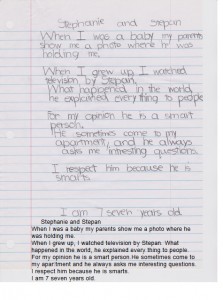 Stephanie and Stepan
When I was a baby my parents
show me a photo where he was
holding me.
When I grew up I watched
television by Stepan.
What happened in the world,
he explained every thing to people
For my opinion he is a smart
person.
He sometimes come to my
apartment, and he always
asks me intresting questions.
I respect him because he is
smarts.
I am 7 seven years old
Stephanie and Stepan
When I was a baby my parents show me a photo where he
was holding me.
When I grew up, I watched television by Stepan. What
happened in the world, he explained every thing to people.
For my opinion he is a smart person.He sometimes come to
my apartment and he always asks me interesting questions.
I respect him because he is smarts.
I am 7 seven years old.